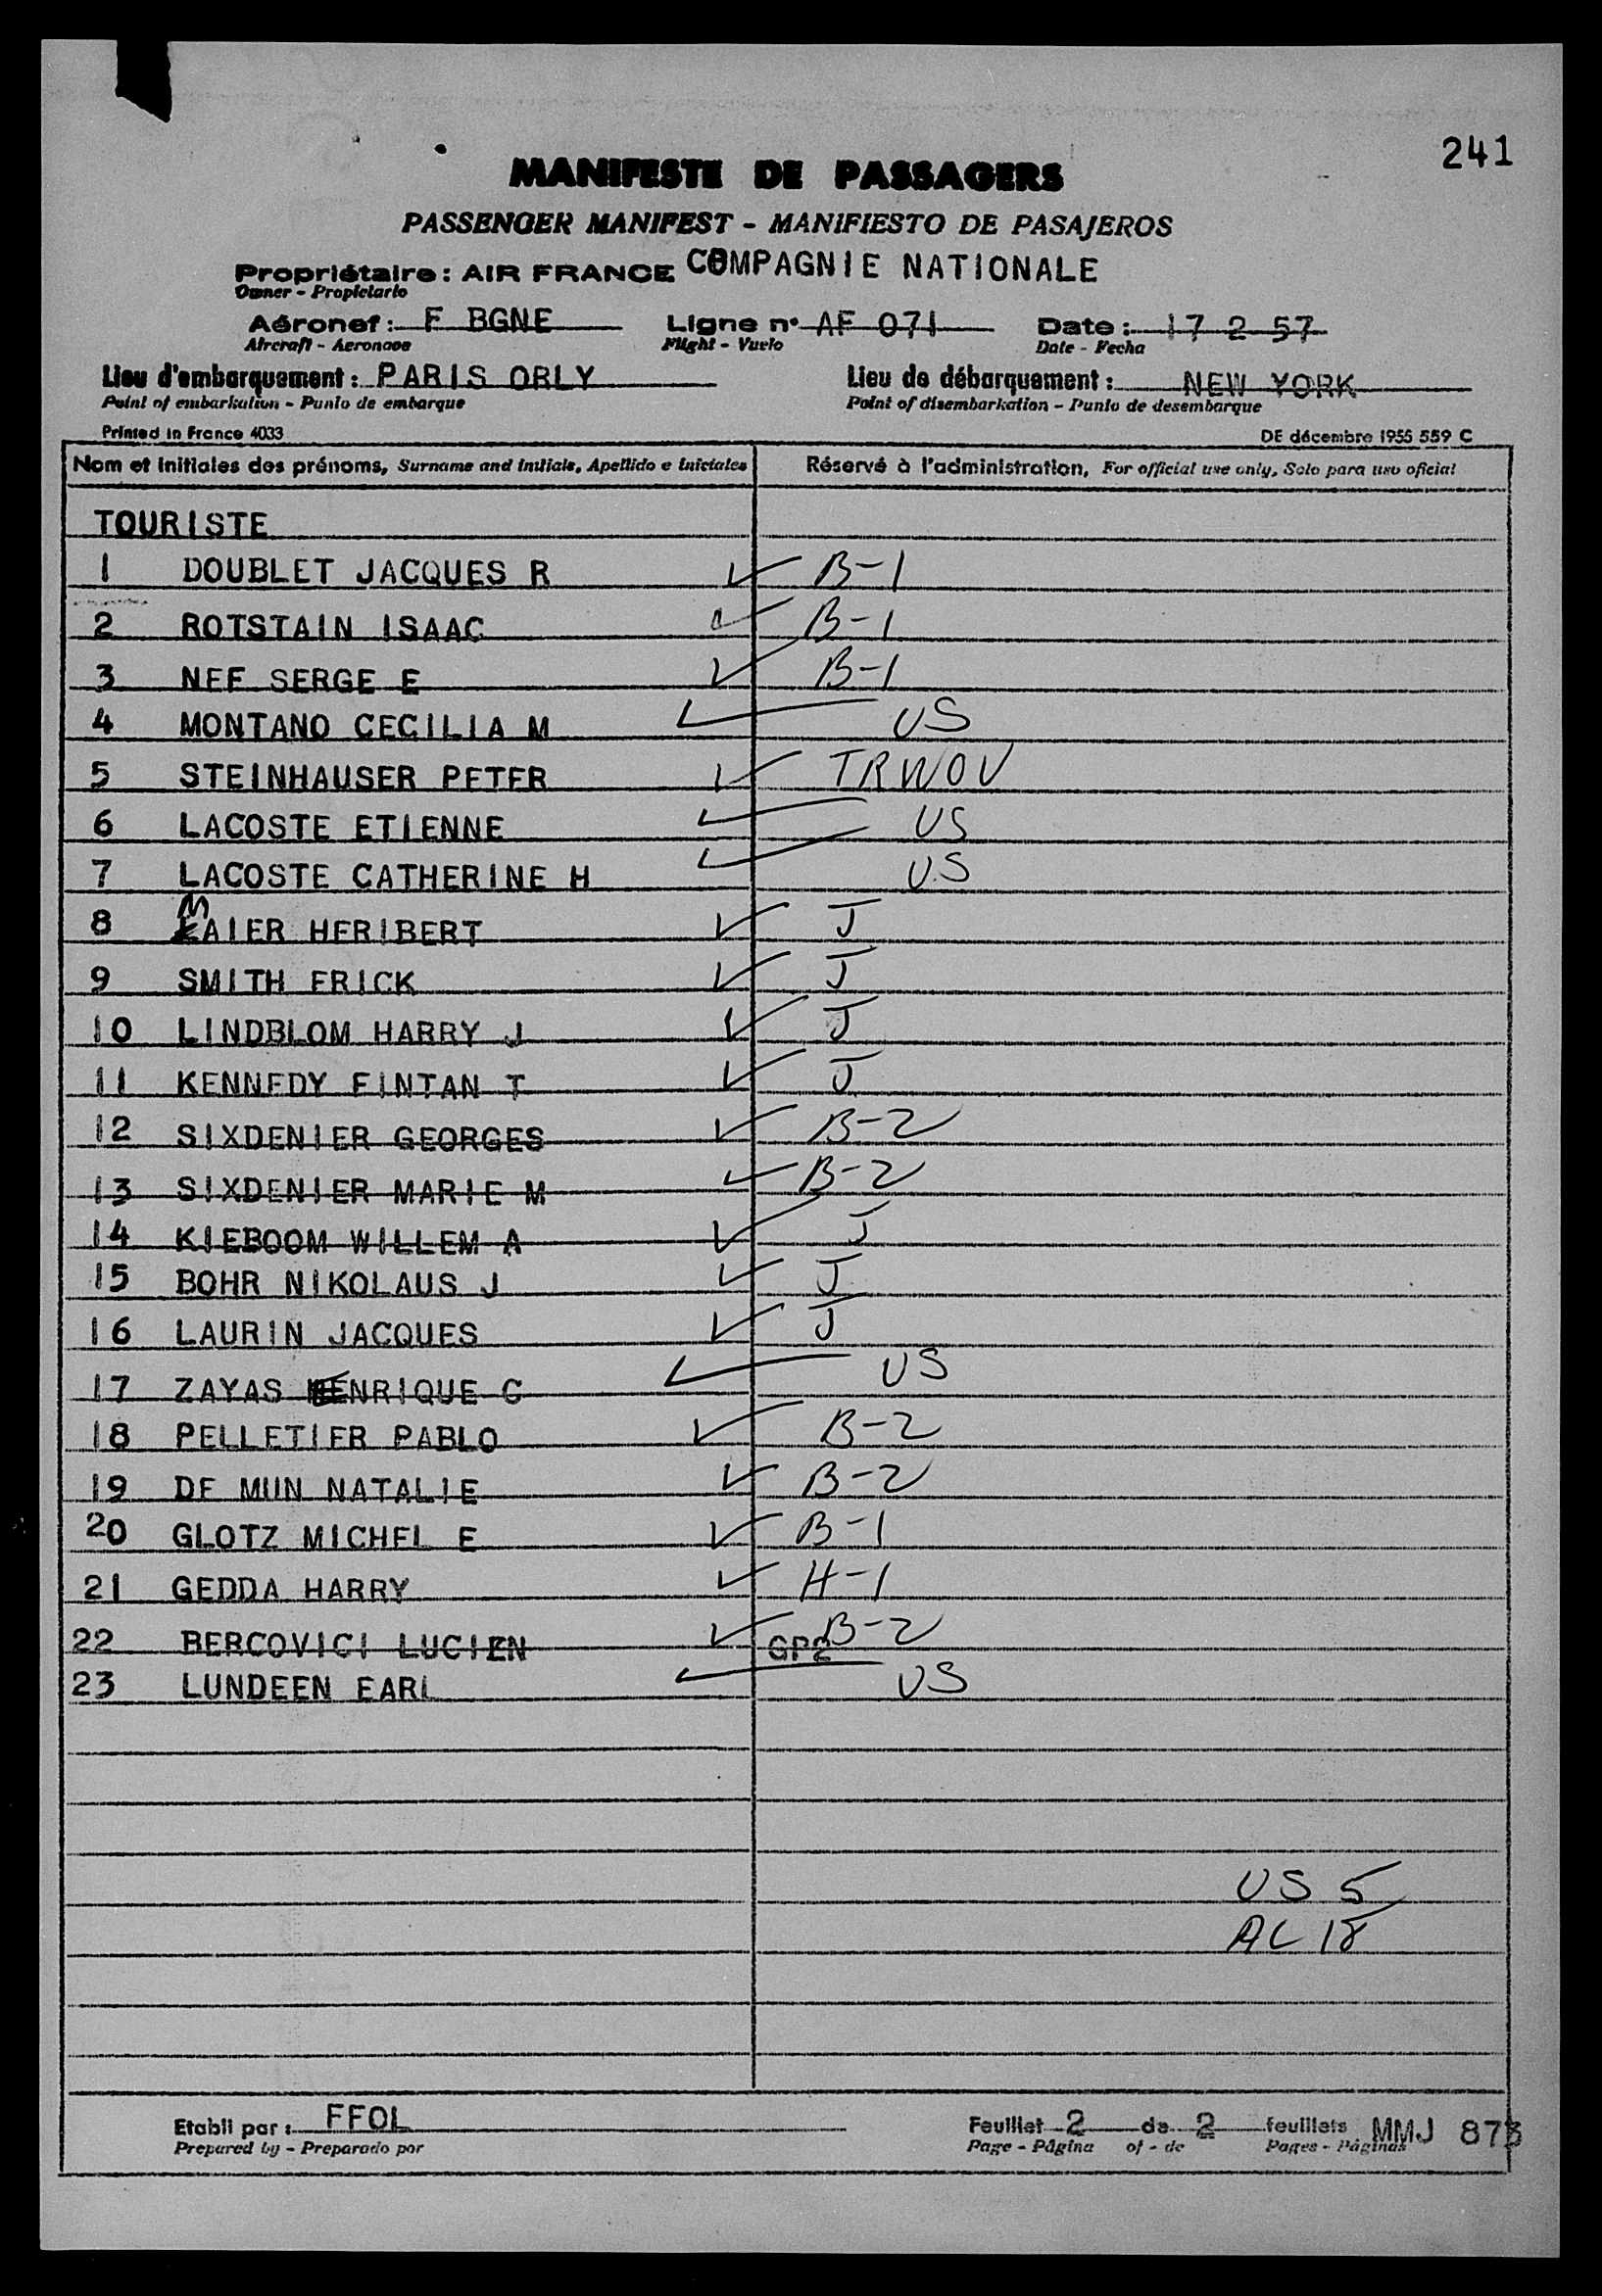 241
MANIFESTE DE PASSAGERS
PASSENGER MANIFEST - MANIFIESTO DE PASAJEROS
Propriétaire : AIR FRANCE COMPAGNIE NATIONALE
Owner - Propietario
Aéronef : F BGNE Ligne n° AF 071 Date : 17 2 57
Aircraft - Aeronave Flight - Vuelo Date - Fecha
Lieu d'embarquement : PARIS ORLY Lieu de débarquement : NEW YORK
Point of embarkation - Punto de embarque Point of disembarkation - Punto de desembarque
Printed in France 4033 DE décembre 1955 559 C
Nom et initiales des prénoms, Surname and initials, Apellido e iniciales Réservé à l'administration, For official use only, Solo para uso oficial
TOURISTE
1 DOUBLET JACQUES R ✓ B-1
2 ROTSTAIN ISAAC ✓ B-1
3 NEF SERGE E ✓ B-1
4 MONTANO CECILIA M ✓ US
5 STEINHAUSER PETER ✓ TRWOV
6 LACOSTE ETIENNE ✓ US
7 LACOSTE CATHERINE H ✓ U.S
8 MAIER HERIBERT ✓ J
9 SMITH ERICK ✓ J
10 LINDBLOM HARRY J ✓ J
11 KENNEDY FINTAN T ✓ J
12 SIXDENIER GEORGES ✓ B-2
13 SIXDENIER MARIE M ✓ B-2
14 KIEBOOM WILLEM A ✓ J
15 BOHR NIKOLAUS J ✓ J
16 LAURIN JACQUES ✓ J
17 ZAYAS ENRIQUE C ✓ US
18 PELLETIER PABLO ✓ B-2
19 DE MUN NATALIE ✓ B-2
20 GLOTZ MICHEL E ✓ B-1
21 GEDDA HARRY ✓ H-1
22 BERCOVICI LUCIEN ✓ GP2 B-2
23 LUNDEEN EARL ✓ US
US 5
AL 18
Etabli par : FFOL Feuillet 2 de 2 feuillets MMJ 873
Prepared by - Preparado por Page - Página of - de Pages - Páginas